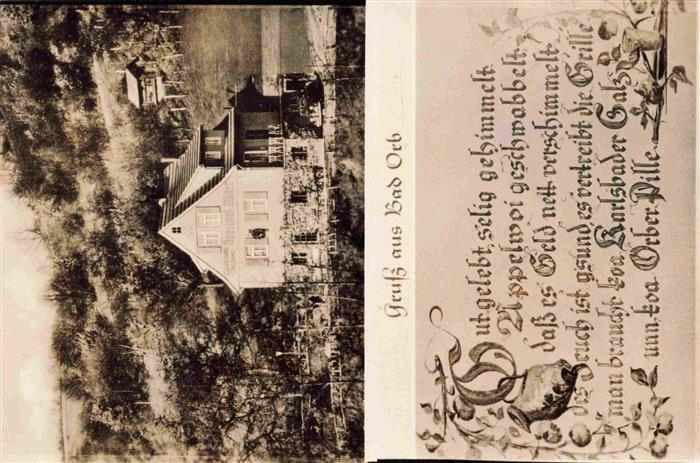 Gruß aus Bad Orb
Gut gelebt, selig gehimmelt
Äppelwoi geschwabbelt
daß es Geld nett verschimmelt
des Deuch ist gsund es vertreibt die Grille
man braucht koa Karlsbader Salz
unn koa Orber Pille